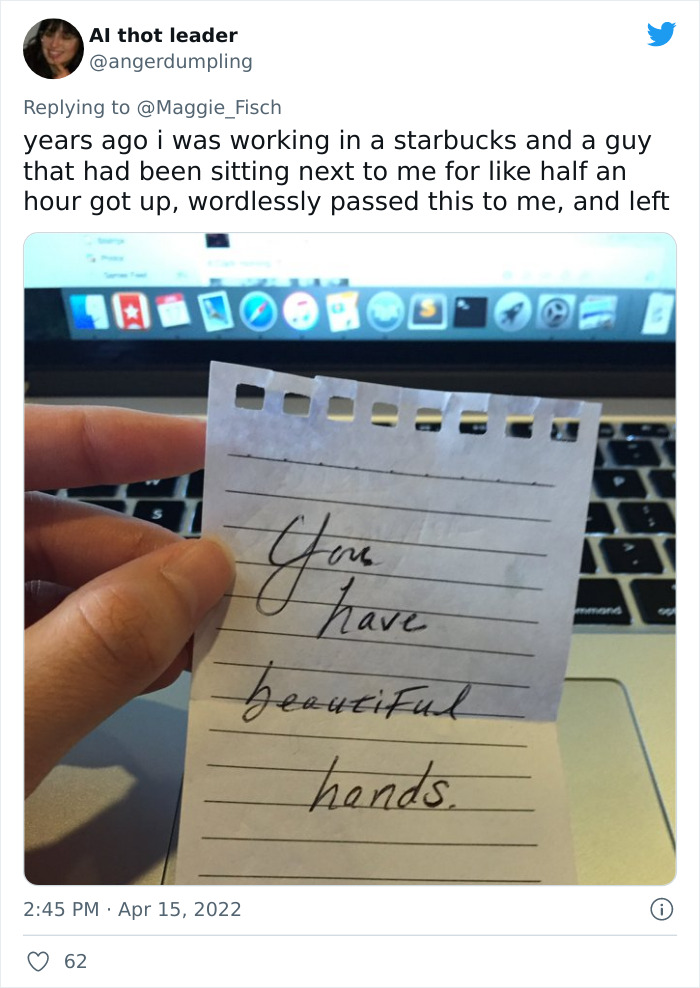 AI thot leader
@angerdumpling
Replying to @Maggie_Fisch
years ago i was working in a starbucks and a guy
that had been sitting next to me for like half an
hour got up, wordlessly passed this to me, and left
You
have
beautiful
hands.
W
S
P
command
opt
2:45 PM · Apr 15, 2022
62